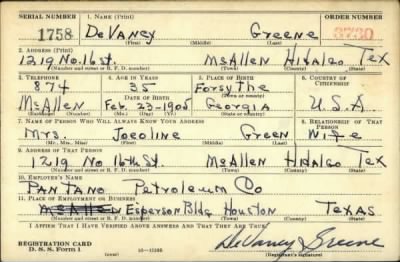 SERIAL NUMBER 1. NAME (Print) ORDER NUMBER
1758 DeVaney Greene 3730
(First) (Middle) (Last)
2. ADDRESS (Print)
1219 No. 16 st. McAllen Hidalgo Tex
(Number and street or R. F. D. number) (Town) (County) (State)
3. TELEPHONE 4. AGE IN YEARS 5. PLACE OF BIRTH 6. COUNTRY OF CITIZENSHIP
874 35 Forsythe
DATE OF BIRTH
McAllen Feb. 23-1905 Georgia U.S.A.
(Exchange) (Number) (Mo.) (Day) (Yr.) (State or country)
7. NAME OF PERSON WHO WILL ALWAYS KNOW YOUR ADDRESS 8. RELATIONSHIP OF THAT PERSON
Mrs. Joeoline Green Wife
(Mr., Mrs., Miss) (First) (Middle) (Last)
9. ADDRESS OF THAT PERSON
1219 No 16th St. McAllen Hidalgo Tex
(Number and street or R. F. D. number) (Town) (County) (State)
10. EMPLOYER'S NAME
Pantano Petroleum Co
11. PLACE OF EMPLOYMENT OR BUSINESS
McAllen Esperson Bldg Houston Texas
(Number and street or R. F. D. number) (Town) (County) (State)
I AFFIRM THAT I HAVE VERIFIED ABOVE ANSWERS AND THAT THEY ARE TRUE.
REGISTRATION CARD
D. S. S. Form 1
(over)
DeVaney Greene
(Registrant's signature)